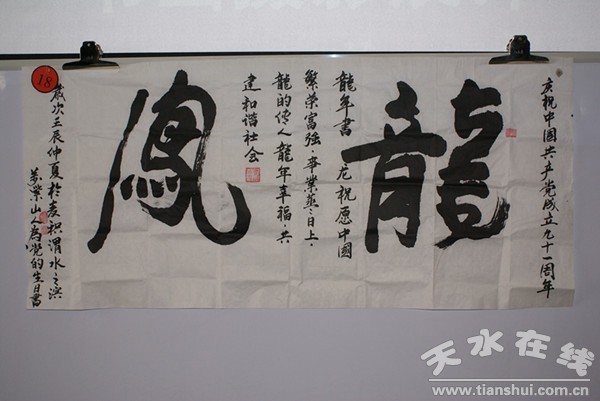 庆祝中國共产党成立九十一周年
龍
龍年書一龙祝愿中國
繁荣富强·事業蒸々日上·
龍的传人龍年幸福·共
建和谐社会
鳳
歲次壬辰仲夏於麦积渭水之滨
山人為党的生日書
18
天水在线
www.tianshui.com.cn